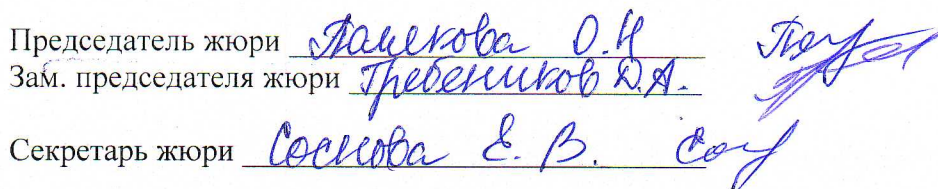 Председатель жюри Полякова О.Н
Зам. председателя жюри Гребеников Д.А.
Секретарь жюри Соснова Е. В.